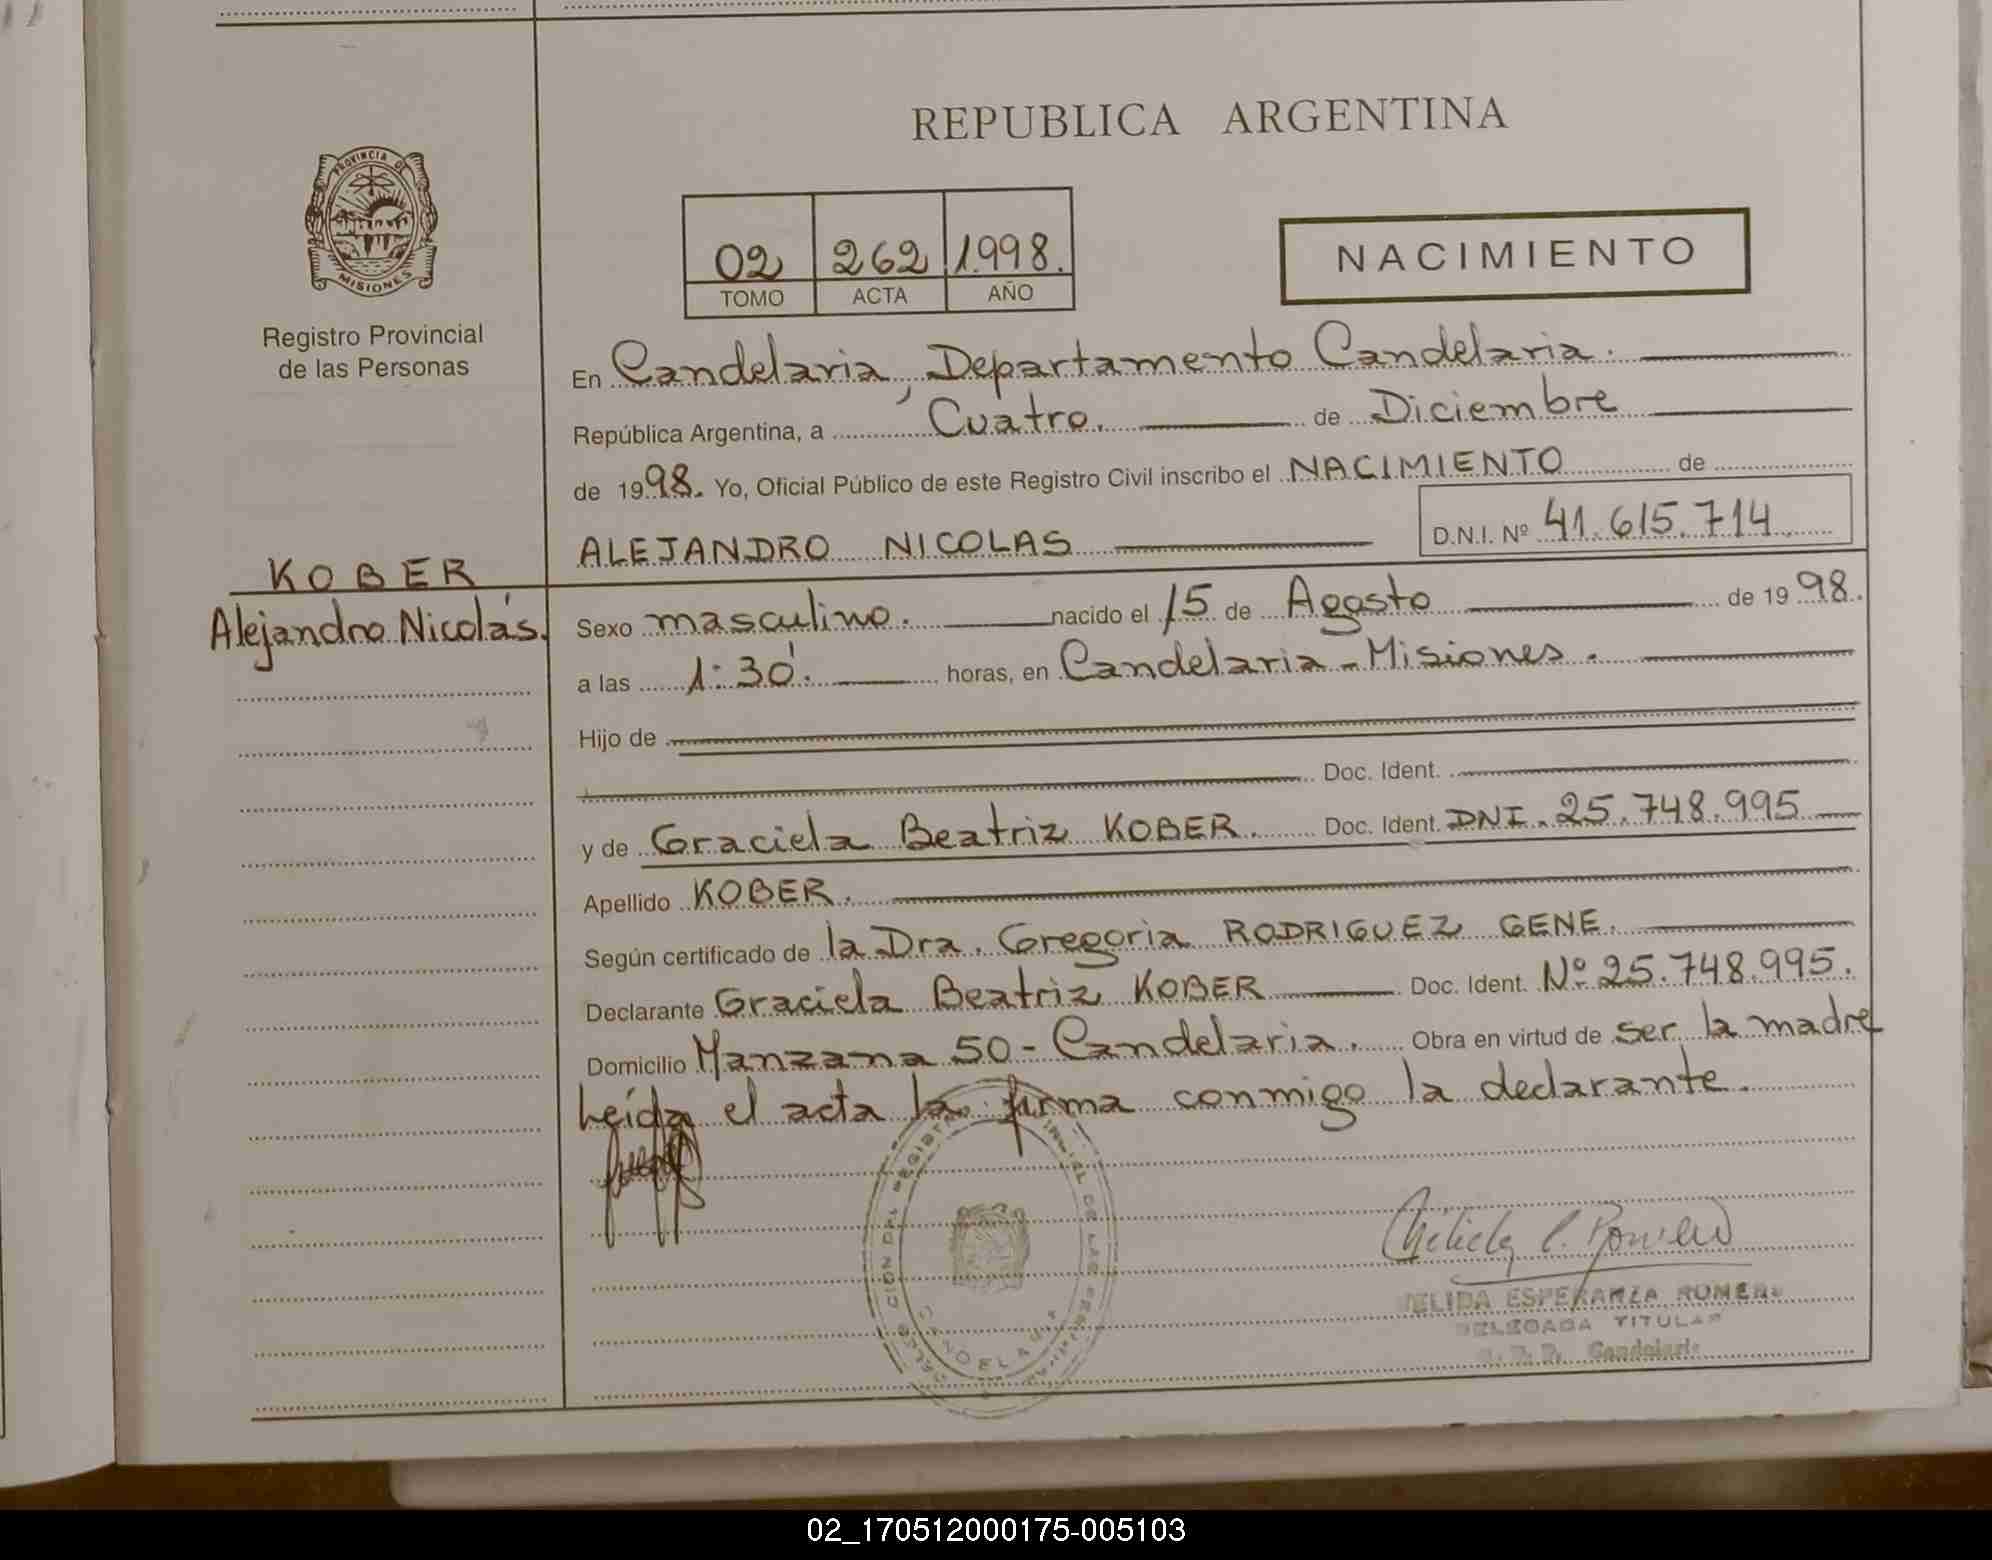 REPUBLICA ARGENTINA
PROVINCIA DE
MISIONES
Registro Provincial
de las Personas
02 262 1.998.
TOMO ACTA AÑO
NACIMIENTO
En Candelaria, Departamento Candelaria.
República Argentina, a Cuatro. de Diciembre
de 1998. Yo, Oficial Público de este Registro Civil inscribo el NACIMIENTO de
ALEJANDRO NICOLAS D.N.I. Nº 41.615.714
KOBER
Alejandro Nicolás.
Sexo masculino. nacido el 15 de Agosto de 1998.
a las 1:30'. horas, en Candelaria - Misiones.
Hijo de
Doc. Ident.
y de Graciela Beatriz KOBER. Doc. Ident. DNI. 25.748.995
Apellido KOBER.
Según certificado de la Dra. Gregoria RODRIGUEZ GENE.
Declarante Graciela Beatriz KOBER Doc. Ident. Nº 25.748.995.
Domicilio Manzana 50 - Candelaria. Obra en virtud de ser la madre
Leída el acta la firma conmigo la declarante.
ESPERANZA ROMERO
DELEGADA TITULAR
Candelaria
02_170512000175-005103